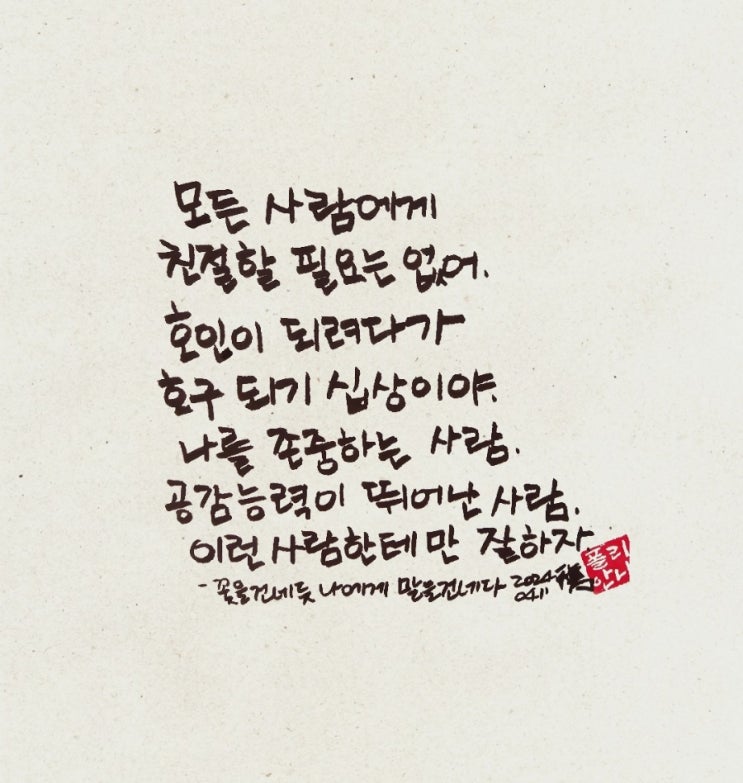 모든 사람에게
친절할 필요는 없어.
호인이 되려다가
호구 되기 십상이야.
나를 존중하는 사람.
공감능력이 뛰어난 사람.
이런 사람한테만 잘하자
- 꽃을건네듯 나에게 말을건네다 2024 0411
폴리안나